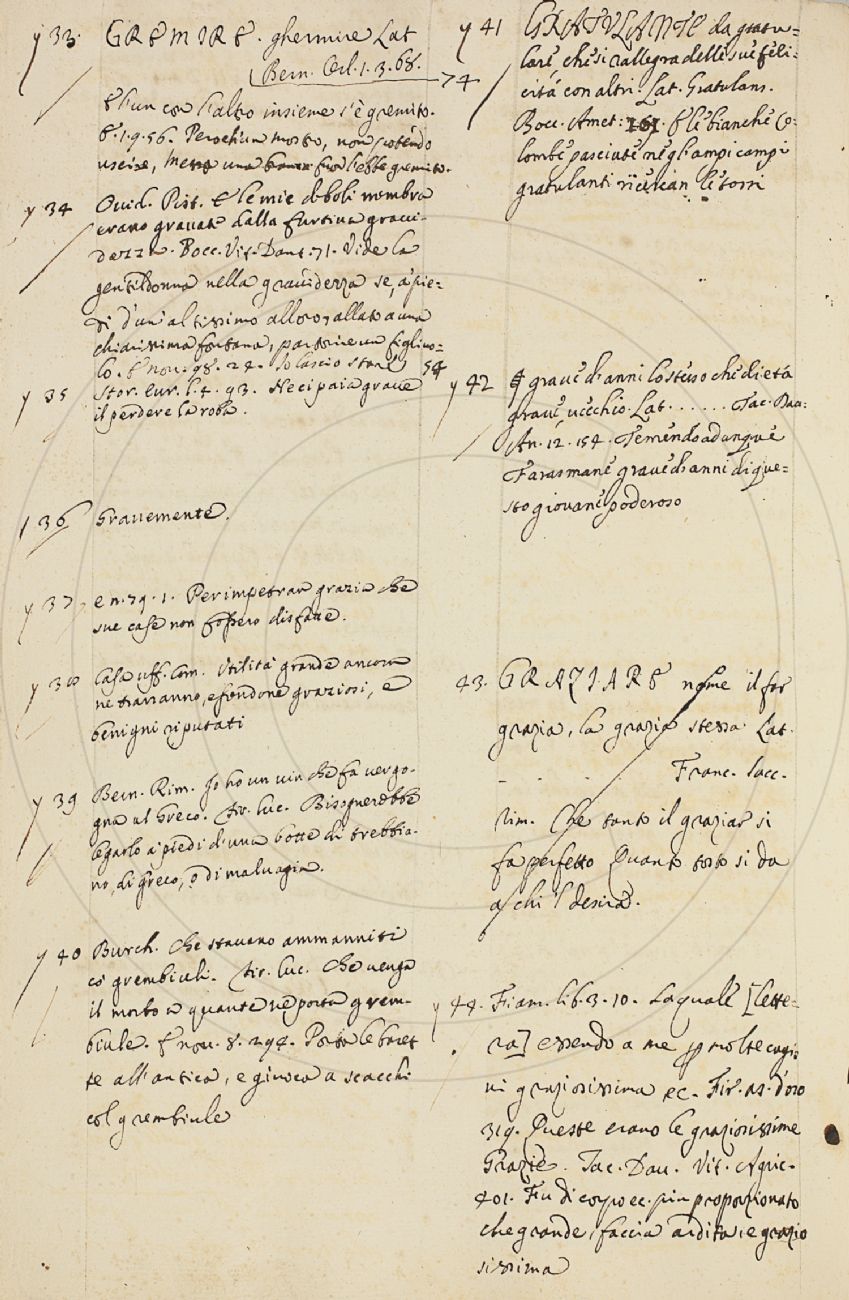 y 33. GREMIRE. ghermire Lat
Bern. Orl. 1. 3. 68.
74
E l'un con l'altro insieme s'è gremito.
E. 1. 9. 56. Peroch'un morto, non potendo
uscire, una fuor l'ebbe gremito.
y 34 Ovid. Pist. E le mie deboli membra
erano gravate dalla furtiva gravi-
dezza. Bocc. Vit. Dant. 71. Vide la
gentildonna nella gravidezza se, a' pie-
di d'un altissimo alloro, allato a una
chiarissima fontana, partorire un figliuo-
lo. E nov. 98. 24. Io lascio stare 54
y 35 Stor. Eur. l. 4. 93. Ne ci paia grave
il perdere la roba.
y 36 Gravemente.
y 37 e n. 79. 1. Per impetrar grazia che
sue case non fossero disfatte.
y 38 Casa uff. Com. Utilità grande ancora
ne trarranno, essendone graziosi, e
benigni riputati
y 39 Bern. Rim. Io ho un vin che fa vergo-
gna al Greco. Fir. Luc. Bisognerebbe
legarlo a' piedi d'una botte di trebbia-
no, di Greco, o di malvagia.
y 40 Burch. Che stavano ammanniti
co' grembiuli. Fir. Luc. Che venga
il morbo a quante ne porta grem-
biule. E nov. 8. 294. Porta le baret
te all'antica, e giuoca a scacchi
col grembiule
y 41 GRATULANTE da gratu-
lare, che si rallegra delle sue feli-
cità con altri. Lat. Gratulans.
Bocc. Amet: 101. E le bianche co-
lombe pasciute negl'ampi campi
gratulanti ricercan le torri
y 42 § grave d'anni lo stesso che di età
grave, vecchio. Lat. . . . . . . Tac. Dav:
An. 12. 154. Temendo adunque
Farasmane grave d'anni di que-
sto giovane poderoso
43. GRAZIARE nome il far
grazia, la grazia stessa. Lat.
- . . . Franc. Sacc.
rim. Che tanto il graziar si
fa perfetto Quanto tosto si da
a chi 'l desira.
y 44. Fiam. lib. 3. 10. La quale [lette-
ra] essendo a me p molte cagi
ni graziosissima ec. Fir. as. d'oro
319. Queste erano le graziosissime
Grazie. Tac. Dav. Vit. Agric.
401. Fu di corpo ec. più proporzionato
che grande, faccia ardita, e grazio
sissima